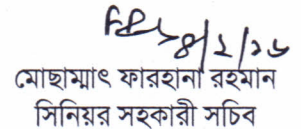 ৪/২/২৬
মোছাম্মাৎ ফারহানা রহমান
সিনিয়র সহকারী সচিব